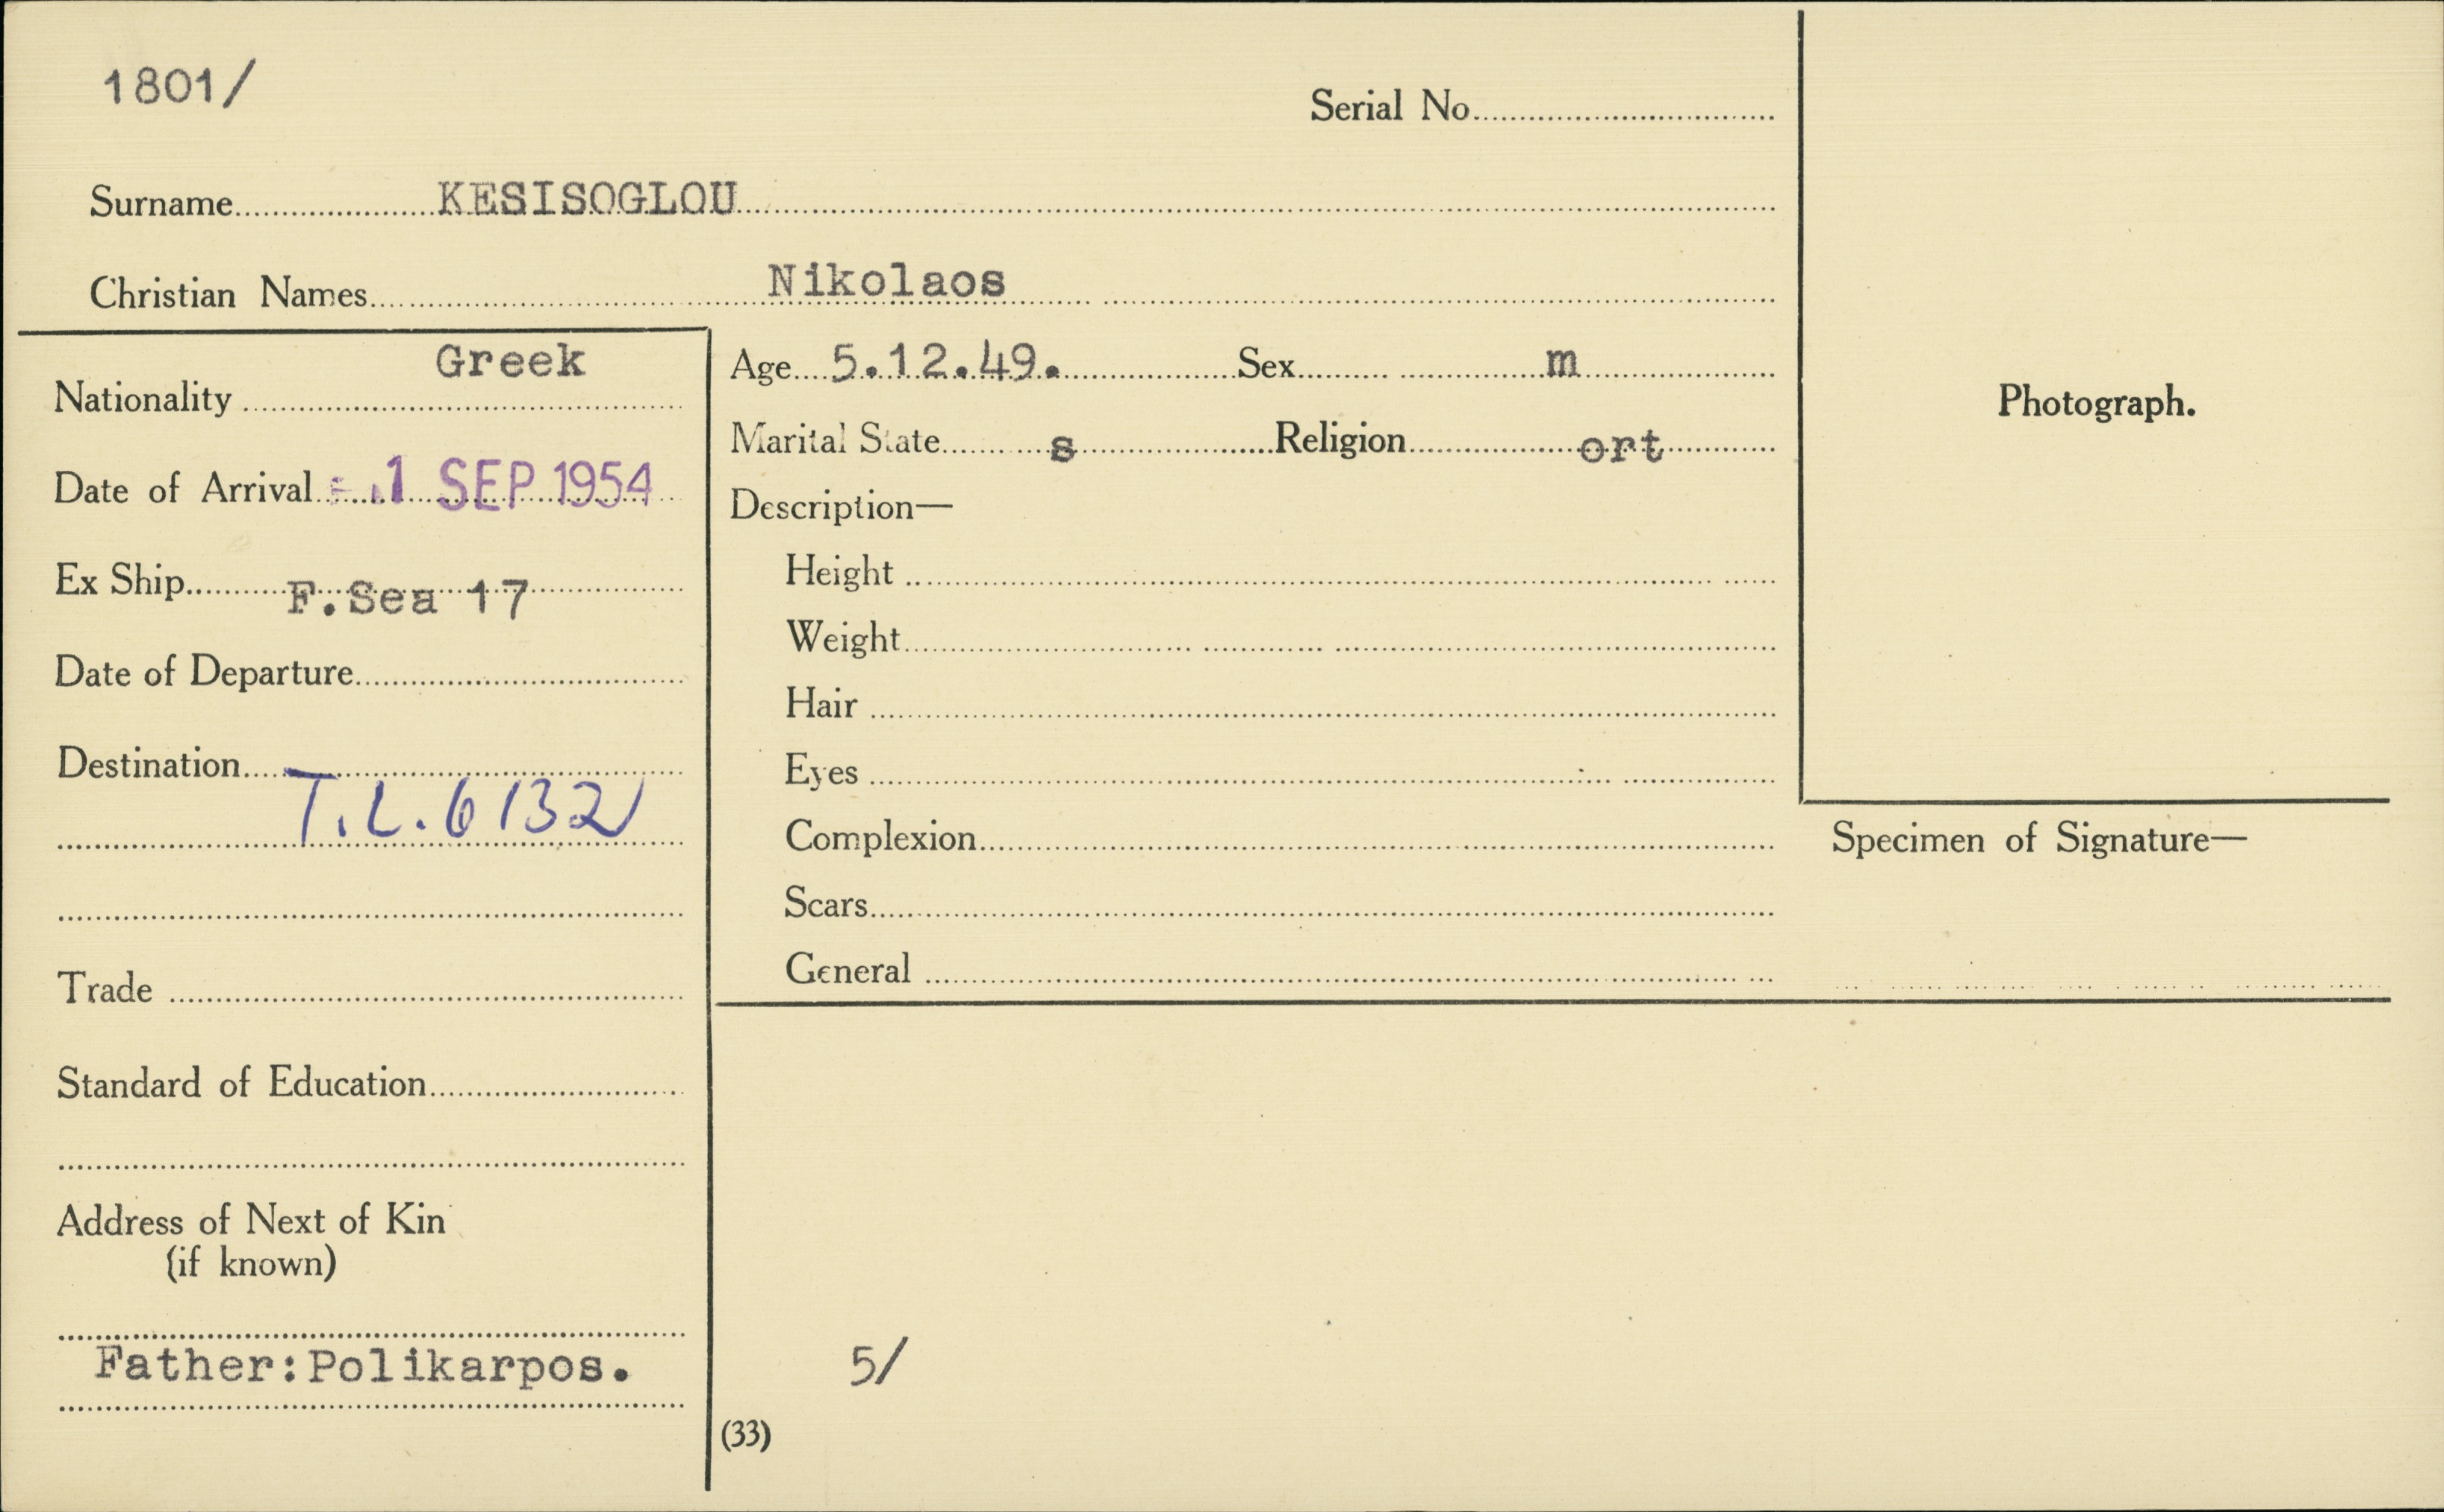 1801/
Serial No.
Surname KESISOGLOU
Christian Names Nikolaos
Nationality Greek
Date of Arrival - 1 SEP 1954
Ex Ship F.Sea 17
Date of Departure
Destination
T.L. 6132
Trade
Standard of Education
Address of Next of Kin
(if known)
Father:Polikarpos.
Age 5.12.49. Sex m
Marital State s Religion ort
Description—
Height
Weight
Hair
Eyes
Complexion
Scars
General
5/
(33)
Photograph.
Specimen of Signature—